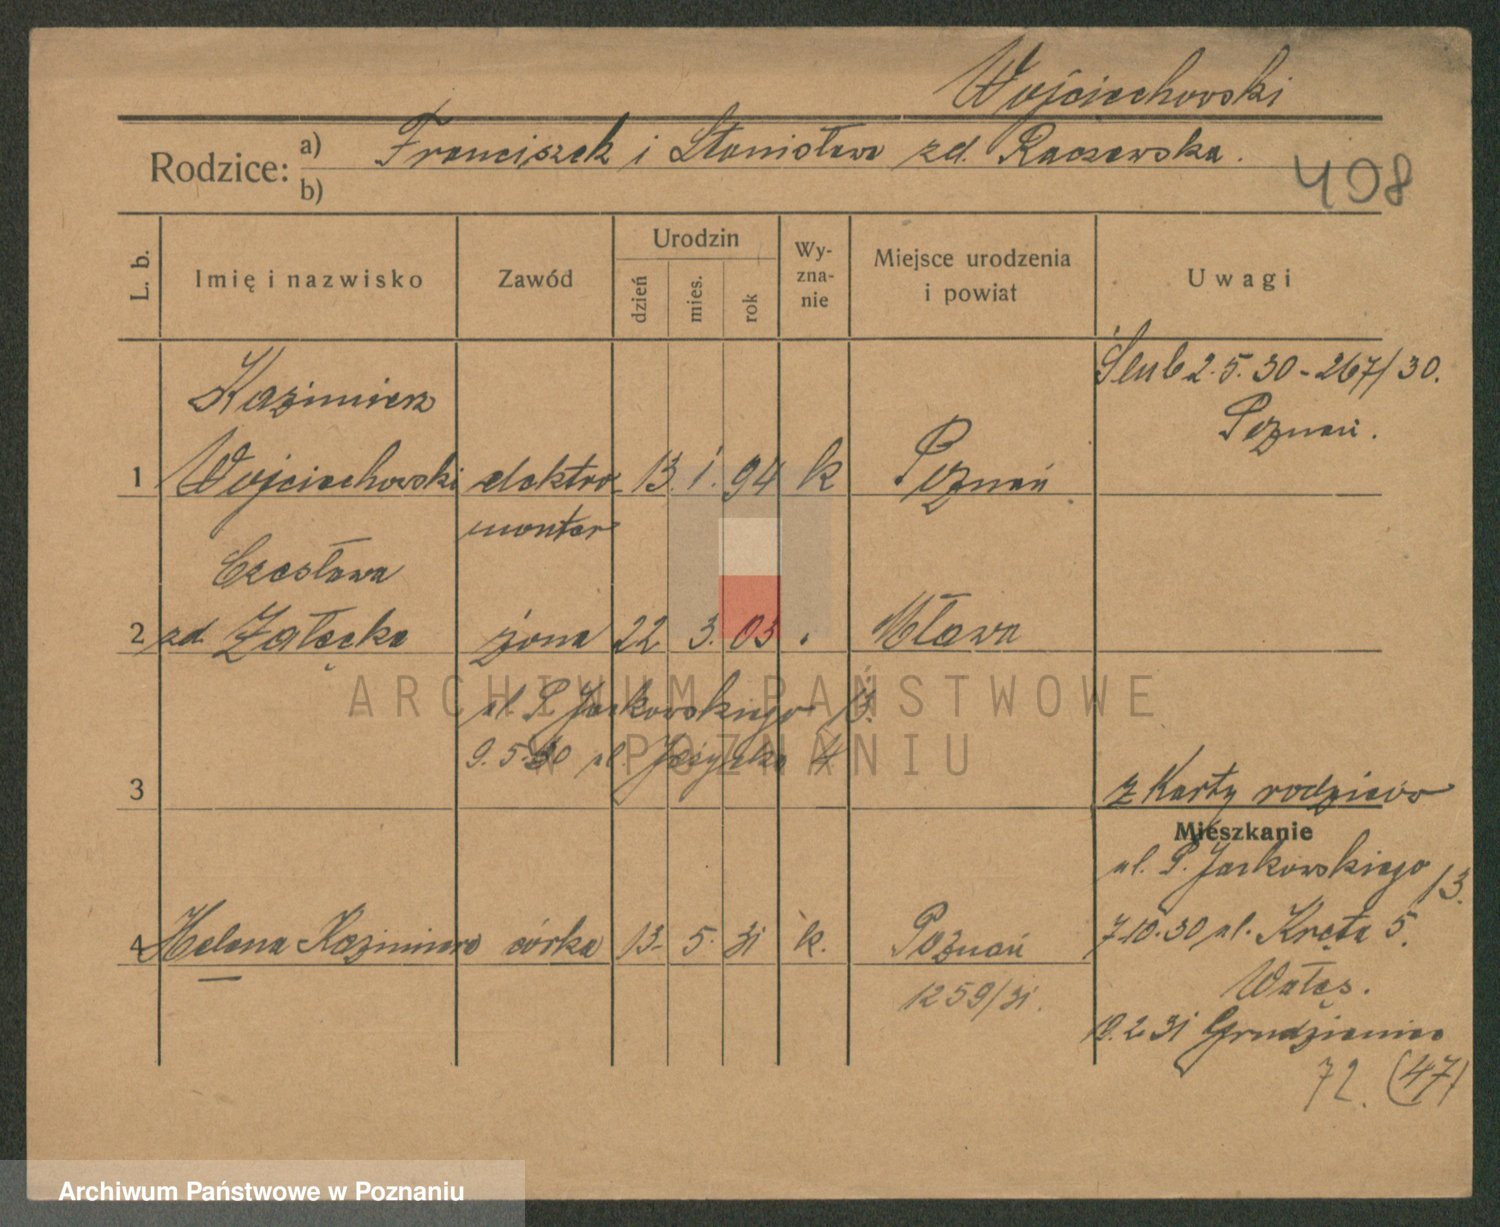 Wojciechowski
Rodzice: a) Franciszek i Stanisława zd. Raczewska.
b)
408
L. b.
Imię i nazwisko
Zawód
Urodzin
dzień
mies.
rok
Wy-
zna-
nie
Miejsce urodzenia
i powiat
Uwagi
Ślub 2.5.30 - 267/30.
Poznań.
Kazimierz
1 Wojciechowski elektro 13. 1. 94 k Poznań
monter
Czesława
2 zd Załęcka żona 22 3. 03 . Mława
ul. P. Jackowskiego 13.
9.5.30 ul. Jeżycka 4
3
z Karty rodziców
Mieszkanie
ul. P. Jackowskiego 13.
4 Helena Kazimiera córka 13. 5. 31 k. Poznań
1259/31.
7.10.30 ul. Kręta 5.
Wałęs.
19.2.31 Grudzieniec
72. (47)
ARCHIWUM PAŃSTWOWE
W POZNANIU
Archiwum Państwowe w Poznaniu